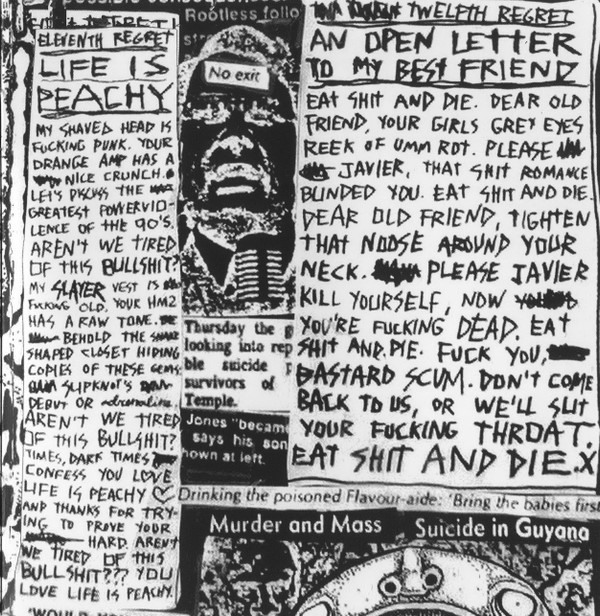 Rootless follo
ELEVENTH REGRET
LIFE IS
PEACHY
MY SHAVED HEAD IS
FUCKING PUNK. YOUR
ORANGE AMP HAS A
NICE CRUNCH.
LET'S DISCUSS THE
GREATEST POWERVIO-
LENCE OF THE 90'S.
AREN'T WE TIRED
OF THIS BULLSHIT?
MY SLAYER VEST IS
FUCKING OLD. YOUR HM2
HAS A RAW TONE.
BEHOLD THE
SHAPED CLOSET HIDING
COPIES OF THESE GEMS:
SLIPKNOT'S
DEBUT OR adrenaline.
AREN'T WE TIRED
OF THIS BULLSHIT?
TIMES, DARK TIMES
CONFESS YOU LOVE
LIFE IS PEACHY ♡
AND THANKS FOR TRY-
ING TO PROVE YOUR
HARD. AREN'T
WE TIRED OF THIS
BULLSHIT??? YOU
LOVE LIFE IS PEACHY.
No exit
Thursday the g
looking into rep
ble suicide p
survivors of
Temple.
Jones "became
says his son
hown at left.
TWELFTH REGRET
AN OPEN LETTER
TO MY BEST FRIEND
EAT SHIT AND DIE. DEAR OLD
FRIEND, YOUR GIRLS GREY EYES
REEK OF UMM ROT. PLEASE
JAVIER, THAT SHIT ROMANCE
BLINDED YOU. EAT SHIT AND DIE.
DEAR OLD FRIEND, TIGHTEN
THAT NOOSE AROUND YOUR
NECK. PLEASE JAVIER
KILL YOURSELF, NOW
YOU'RE FUCKING DEAD. EAT
SHIT AND DIE. FUCK YOU,
BASTARD SCUM. DON'T COME
BACK TO US, OR WE'LL SLIT
YOUR FUCKING THROAT.
EAT SHIT AND DIE.X
Drinking the poisoned Flavour-aide: 'Bring the babies first
Murder and Mass Suicide in Guyana